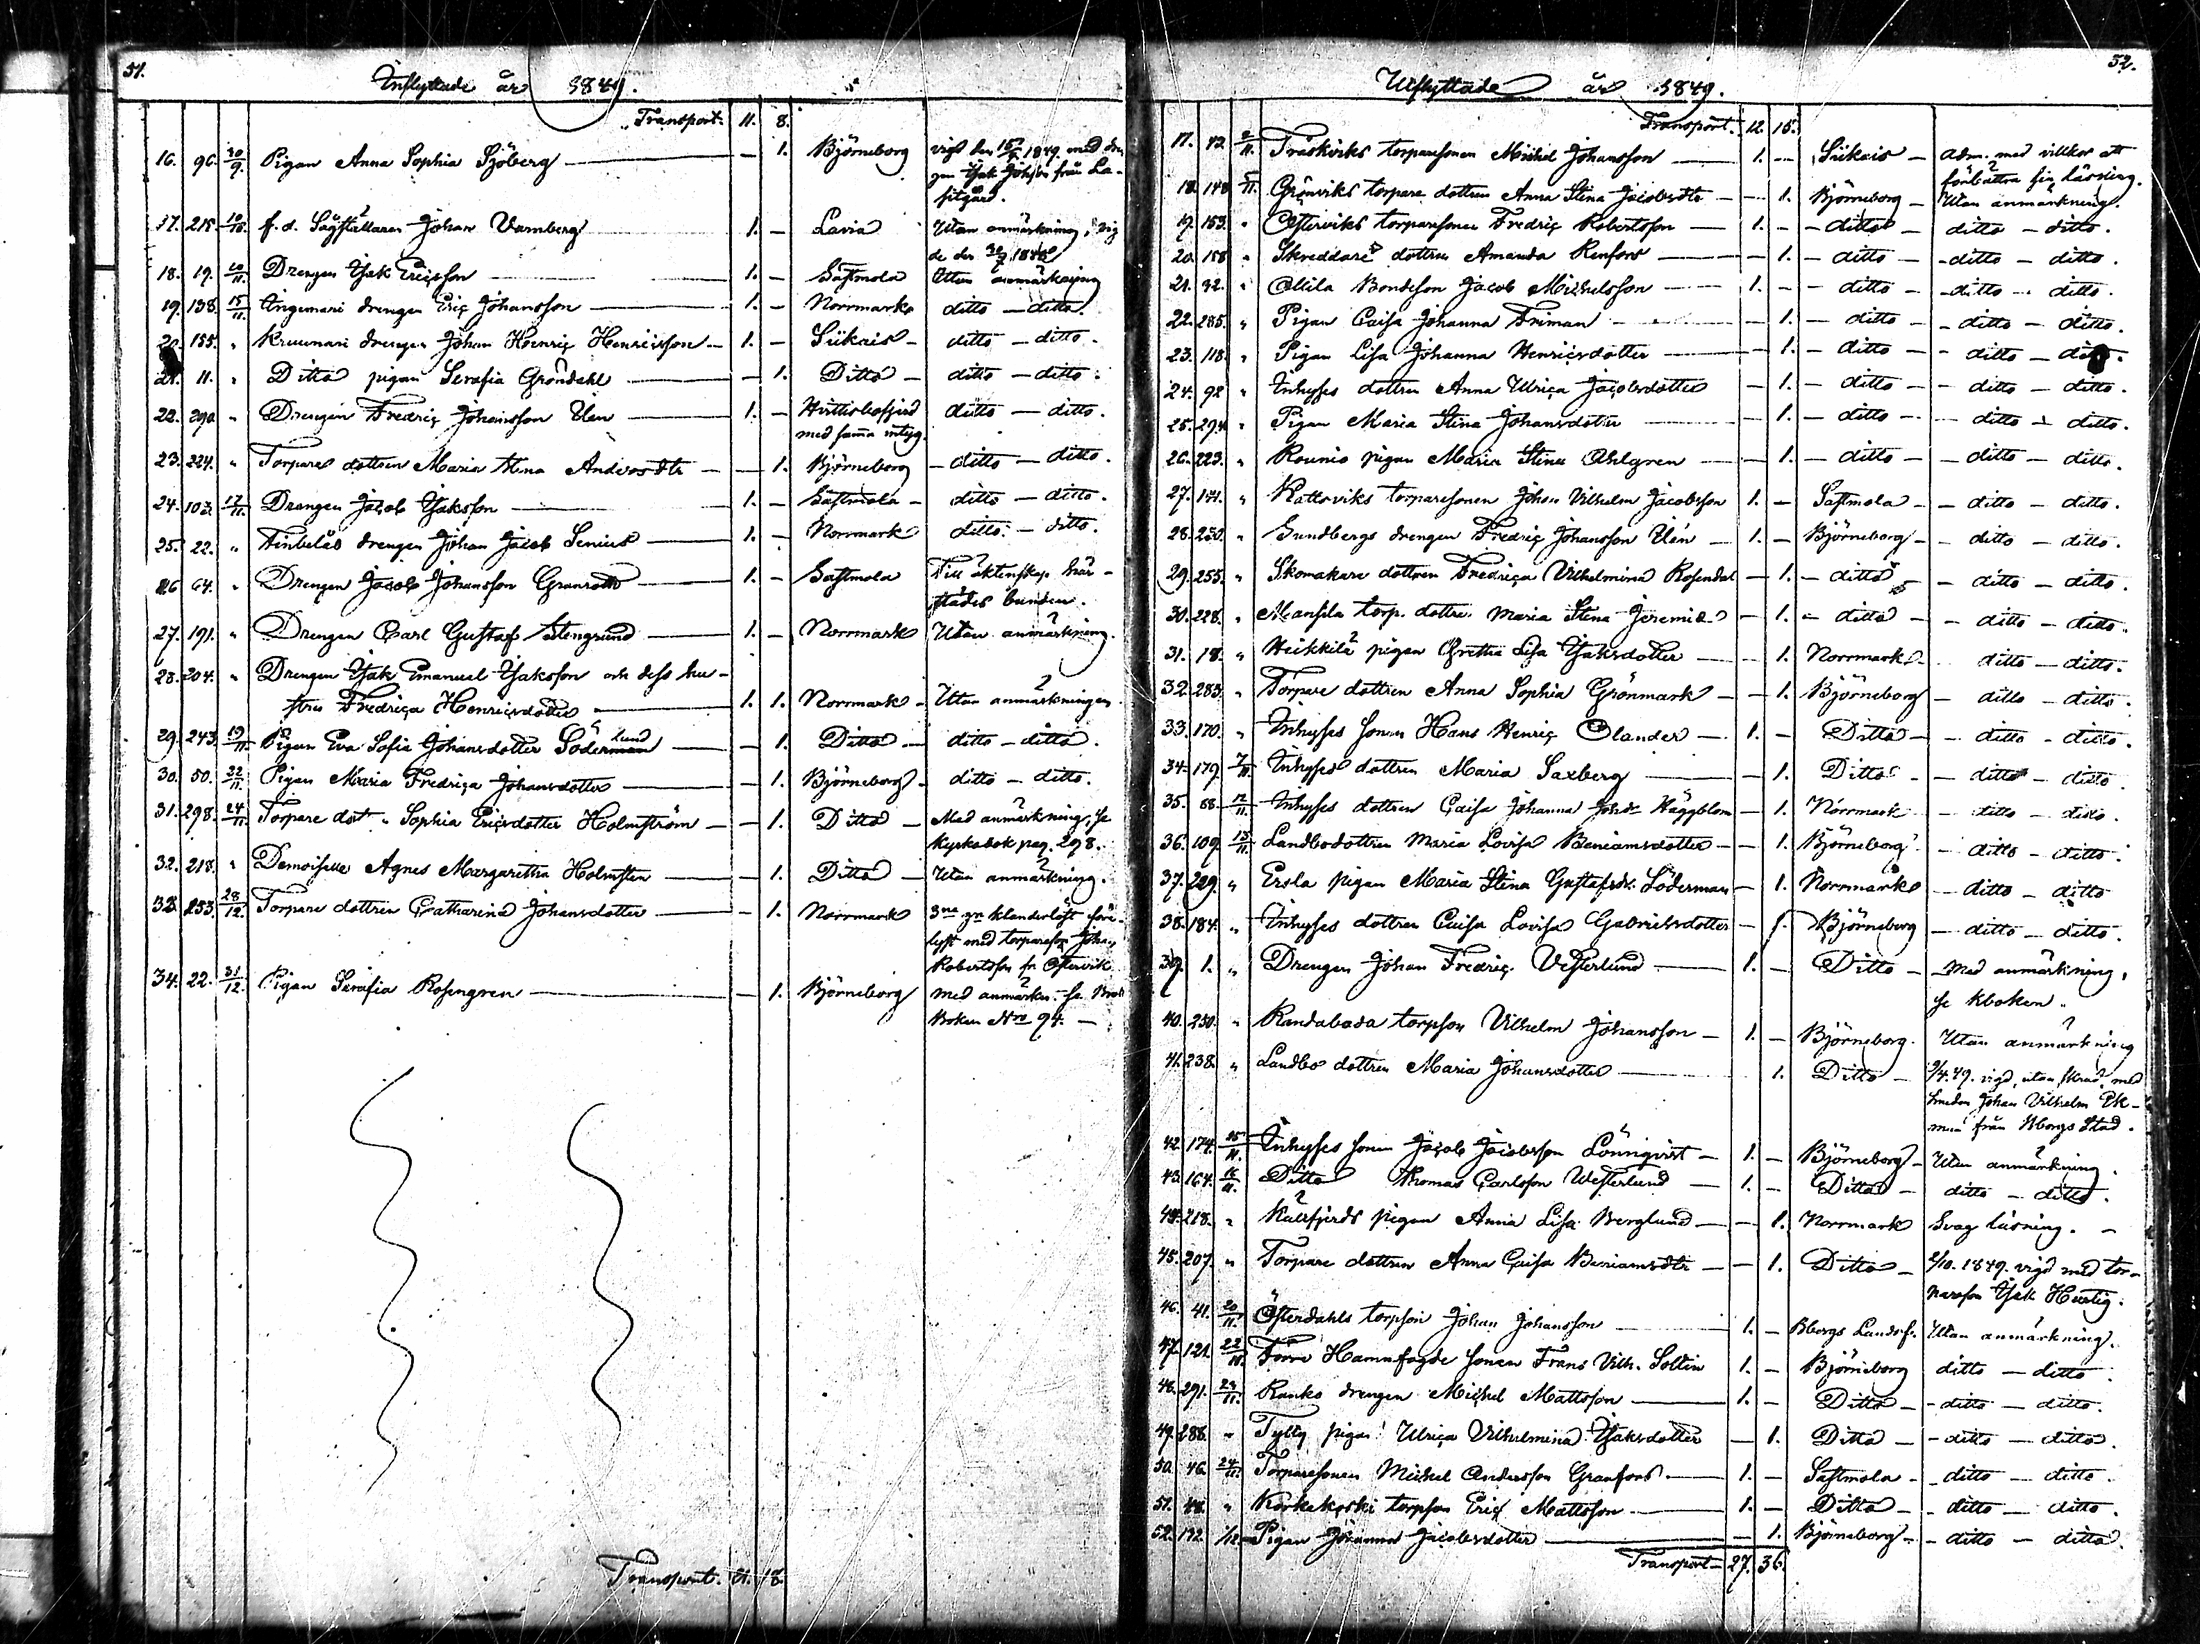 51.
Inflyttade år 1849.
Transport. 11. 8.
16. 96. 30/9. Pigan Anna Sophia Sjöberg — 1. Björneborg vigd den 1849 med
gen Isak från La-
fitgård.
17. 215. f. d. Johan Varnberg 1. — Lavia Utan anmärkning, vig
de den
18. 19. Drengen Isak Ericsson 1. — Sastmola Utan anmärkning
19. 138. 15/11. drengen Eric Johansson 1. — Norrmark ditto — ditto.
20. 155. " Kruunari drengen Johan Henric Henricsson — 1. — Siikais — ditto — ditto.
21. 11. " Ditto pigan Serafia Gröndahl — 1. Ditto — ditto — ditto.
22. 290 " Drengen Fredric Johansson Ulen 1. — Hvittisbofjerd ditto — ditto.
med samma intyg.
23. 224. " Torpare dottren Maria Stina Andersdtr — — 1. Björneborg — ditto — ditto.
24. 103. 17/11. Drengen Jacob Isaksson 1. — Sastmola — ditto — ditto.
25. 22. " drengen Johan Jacob Senius 1. — Norrmark ditto. — ditto.
26 64. " Drengen Jacob Johansson Granroth 1. — Sastmola Till äktenskap här-
städes bunden.
27. 191. " Drengen Carl Gustaf Stengrund 1. — Norrmark Utan anmärkning.
28. 204. " Drengen Isak Emanuel Isaksson och dess hu-
stru Fredrica Henricsdotter 1. 1. Norrmark — Utan anmärkningen.
29. 243. 19/11. Pigan Eva Sofia Johansdotter Söderman lund — 1. Ditto — ditto — ditto.
30. 50. 22/11. Pigan Maria Fredrica Johansdotter — 1. Björneborg — ditto — ditto.
31. 298. 24/11. Torpare dot. Sophia Ericsdotter Holmström — — 1. Ditto — Med anmärkning, se
Kyrkobok pag. 298.
32. 218. " Demoiselle Agnes Margaretha Holmsten — 1. Ditto — Utan anmärkning.
33. 253. 28/12. Torpare dottren Catharina Johansdotter — 1. Norrmark 3ne gr klanderlöst
lyst med torpareson Johan
Robertsson fr Ostervik
34. 22. 31/12. Pigan Serafia Rosengren — 1. Björneborg med anmärkn. se
Boken Nro 94. —
Transport. 8.
52.
Utflyttade år 1849.
Transport. 12. 15.
17. 42. Träskviks torparesonen Michel Johansson 1. — Siikais — adm. med villkor att
förbättra sin läsning.
18. 148. Grönviks torpare dottren Anna Stina Jacobsdtr — 1. Björneborg — Utan anmärkning.
19. 153. " Osterviks torparesonen Fredric Robertsson — 1. — — ditto — ditto — ditto.
20. 158 " Skreddare dottren Amanda Renfors — — 1. — ditto — — ditto — ditto.
21. 92. " Ollila Bondeson Jacob Michelsson — 1. — — ditto — — ditto — ditto.
22. 285. " Pigan Caisa Johanna Friman — 1. — ditto — — ditto — ditto.
23. 118. " Pigan Lisa Johanna Henricsdotter — 1. — ditto — ditto — ditto.
24. 92 " Inhyses dottren Anna Ulrica Jacobsdotter — 1. — ditto — — ditto — ditto.
25. 294. " Pigan Maria Stina Johansdotter — 1. — ditto — — ditto — ditto.
26. 223. " Rounio pigan Maria Stina Ahlgren — 1. — ditto — — ditto — ditto.
27. 141. " Kattviks torparesonen Johan Vilhelm Jacobsson 1. — Sastmola — — ditto — ditto.
28. 250. " Sundbergs drengen Fredric Johansson Ulén — 1. — Björneborg — — ditto — ditto.
29. 255. " Skomakare dottren Fredrica Vilhelmina Rosendal — 1. — ditto — ditto — ditto.
30. 228. " torp. dottren Maria Stina Jeremi — 1. — ditto — — ditto — ditto.
31. 18. " Heikkilä pigan Gretha Lisa Isaksdotter — 1. Norrmark — ditto — ditto.
32. 283. " Torpare dottren Anna Sophia Grönmark — 1. Björneborg — ditto — ditto.
33. 170. " Inhyses sonen Hans Henric Olander — 1. — Ditto — — ditto — ditto.
34. 179. 7/11. Inhyses dottren Maria Saxberg — 1. Ditto — ditto — ditto.
35. 88. 12/11. Inhyses dottren Caisa Johanna Johdr Häggblom — 1. Norrmark — ditto — ditto.
36. 109. 15/11. Landbodottren Maria Lovisa Beniamsdotter — — 1. Björneborg — ditto — ditto.
37. 229. " Ersla pigan Maria Stina Gustafsdr. Söderman — 1. Norrmark — ditto — ditto
38. 184. " Inhyses dottren Caisa Lovisa Gabrielsdotter — 1. Björneborg — ditto — ditto.
39. 1. " Drengen Johan Fredric Vesterlund 1. — Ditto — Med anmärkning,
se kboken.
40. 250. " Randabada torpson Vilhelm Johansson — 1. — Björneborg. Utan anmärkning
41. 238. " Landbo dottren Maria Johansdotter 1. Ditto — vigd, utan med
Smeden Johan Vilhelm Ek-
man från Bborgs Stad.
42. 174. Inhyses sonen Jacob Jacobsson Lönnqvist — 1. — Björneborg — Utan anmärkning.
43. 164. 16/11. Ditto Thomas Carlsson Westerlund — 1. — Ditto — ditto — ditto.
44. 218. " pigan Anna Lisa Berglund — — 1. Norrmark Svag läsning. —
45. 207. " Torpare dottren Anna Caisa Beniamsdtr — — 1. Ditto — 2/10. 1849. vigd med tor-
pareson Isak Hurtig.
46. 41. 20/11. Österdahls torpson Johan Johansson 1. — Bborgs Landsf. Utan anmärkning.
47. 121. 22/11. Torre Hamnfogde sonen Frans Vilh. Soltin 1. — Björneborg ditto — ditto.
48. 291. 23/11. Ranko drengen Michel Mattsson 1. — Ditto — — ditto — ditto.
49. 288. " pigan Ulrica Vilhelmina Isaksdotter — 1. Ditto — — ditto — ditto.
50. 46. 24/11. Torparesonen Michel Andersson Granfors. 1. — Sastmola — ditto — ditto.
51. 48. " Korkekoski torpson Eric Mattsson 1. — Ditto — ditto — ditto.
52. 192. 1/12. Pigan Johanna Jacobsdotter — 1. Björneborg — — ditto — ditto.
Transport — 27. 36.